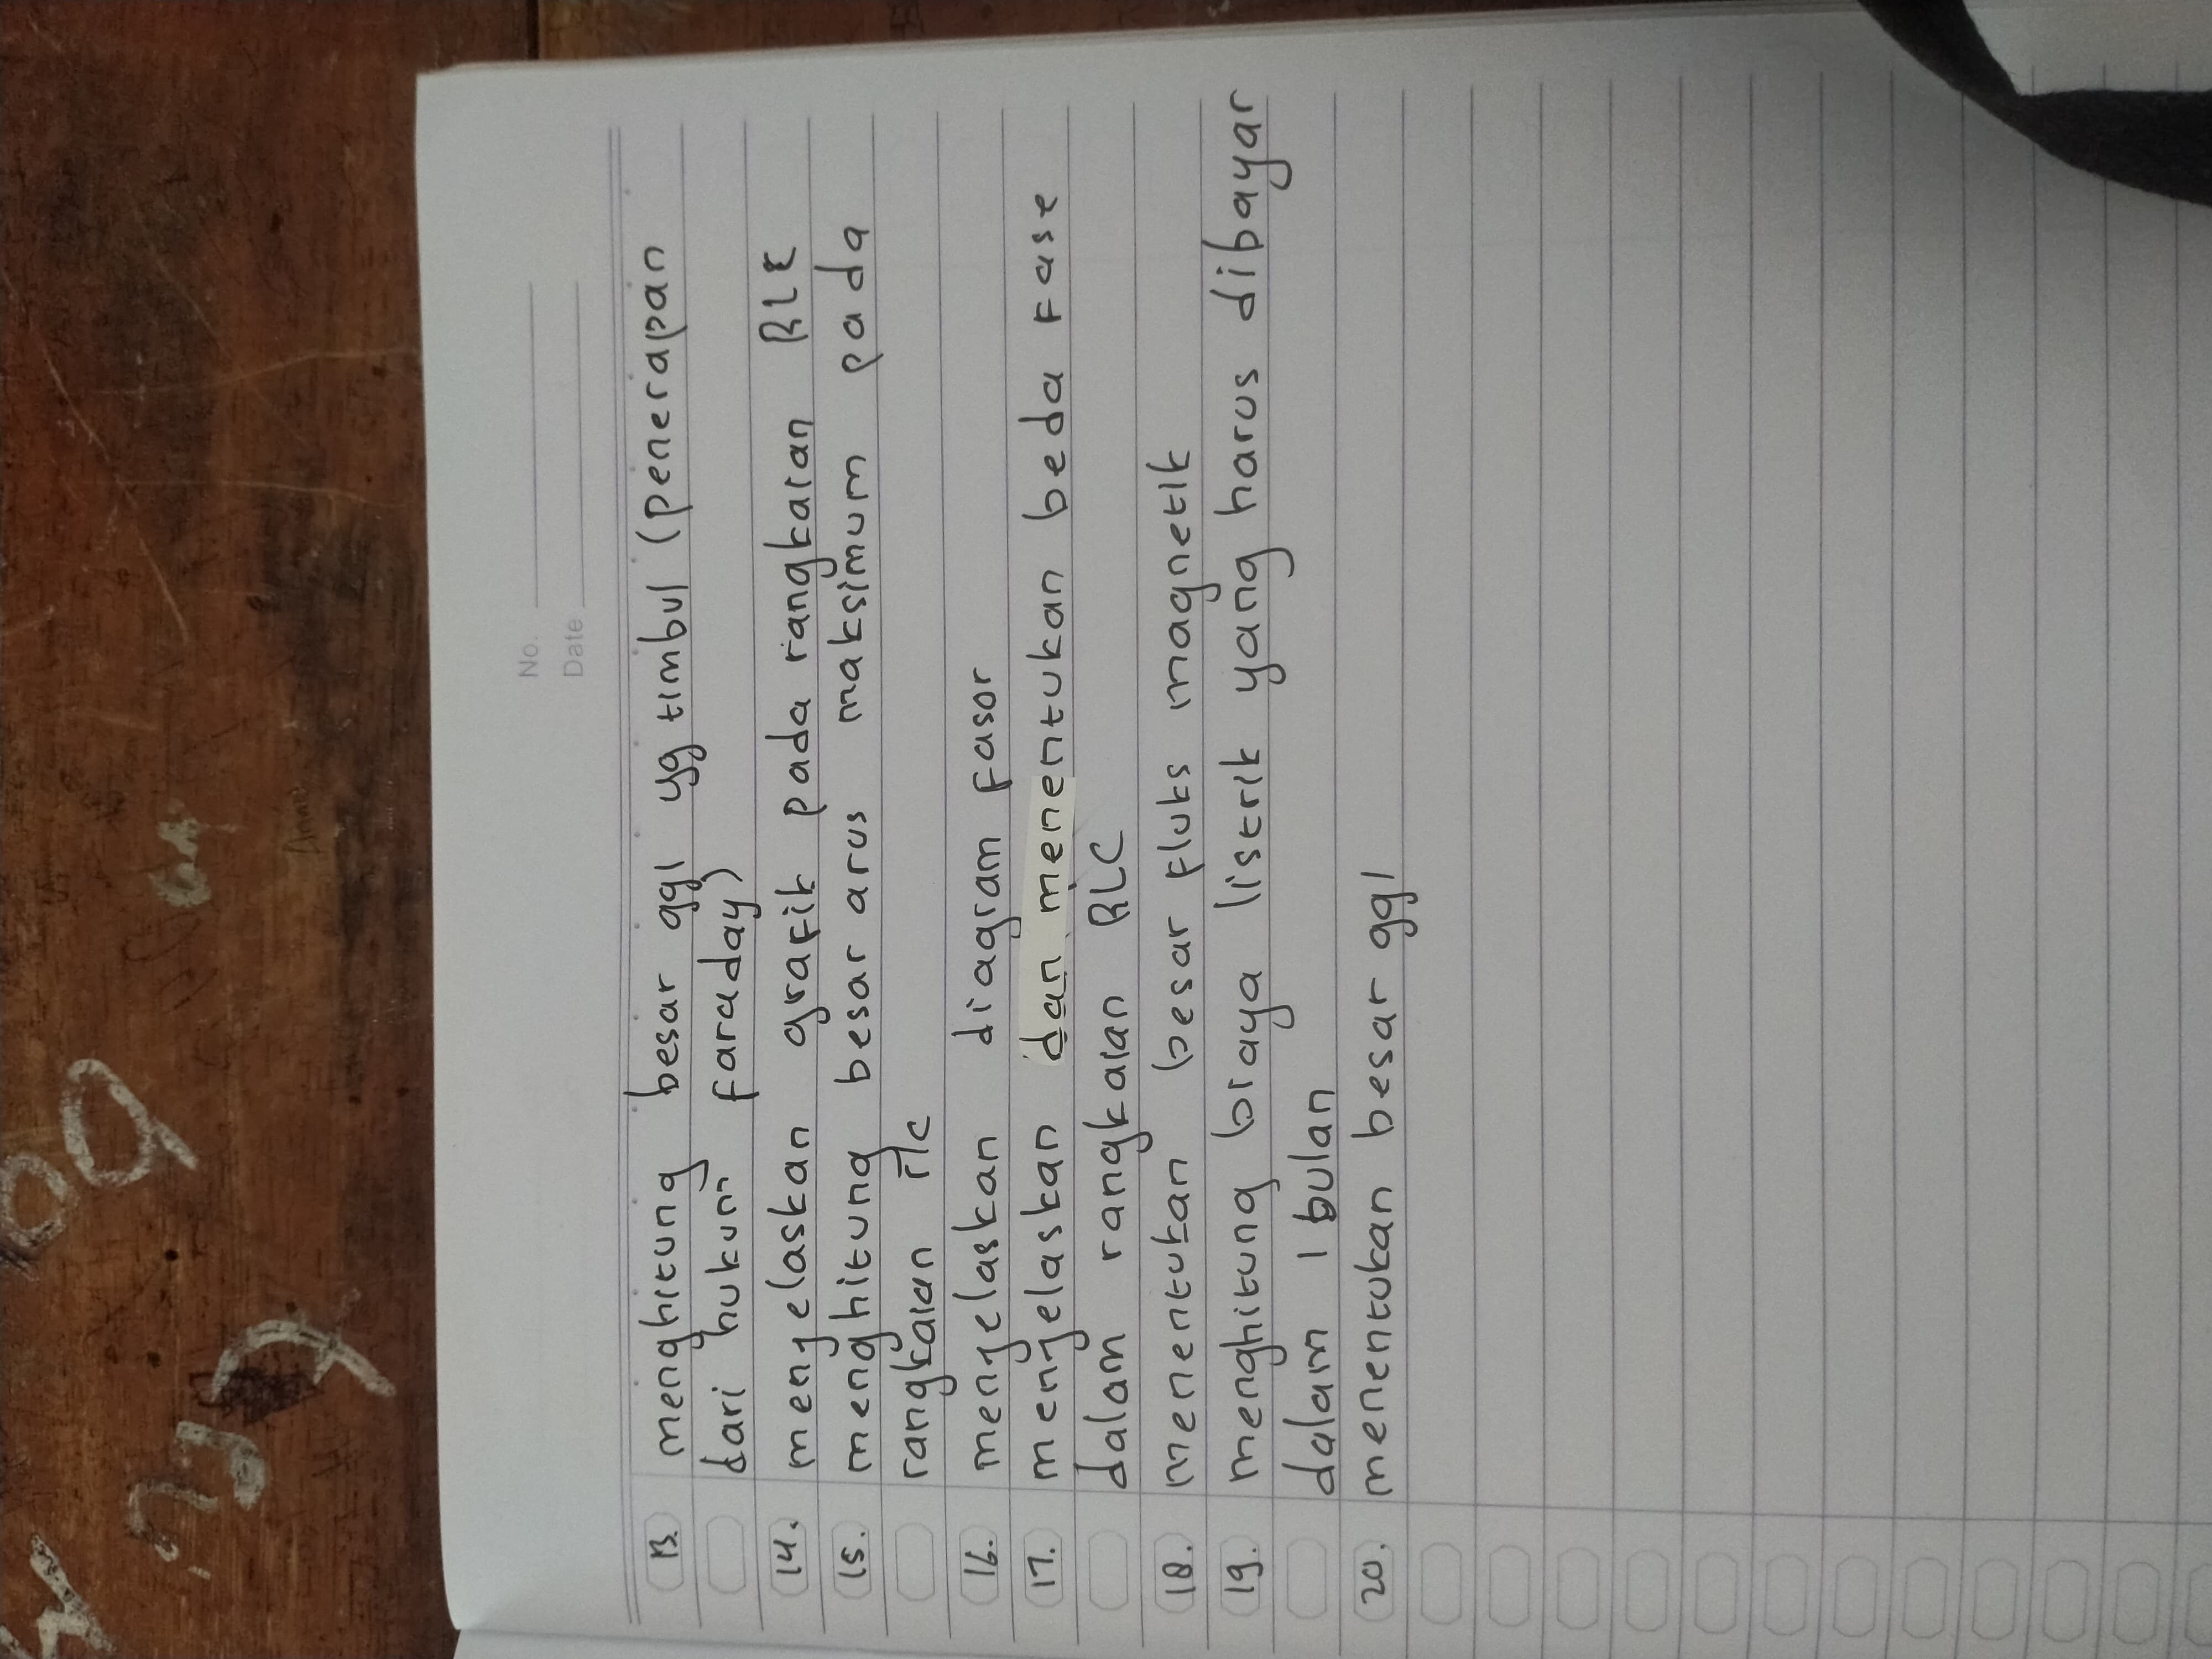 No.
Date
13. menghitung besar ggl yg timbul (penerapan
dari hukum faraday)
14. menjelaskan grafik pada rangkaian RLC
15. menghitung besar arus maksimum pada
rangkaian rlc
16. menjelaskan diagram fasor
17. menjelaskan dan menentukan beda fase
dalam rangkaian RLC
18. menentukan besar fluks magnetik
19. menghitung biaya listrik yang harus dibayar
dalam 1 bulan
20. menentukan besar ggl